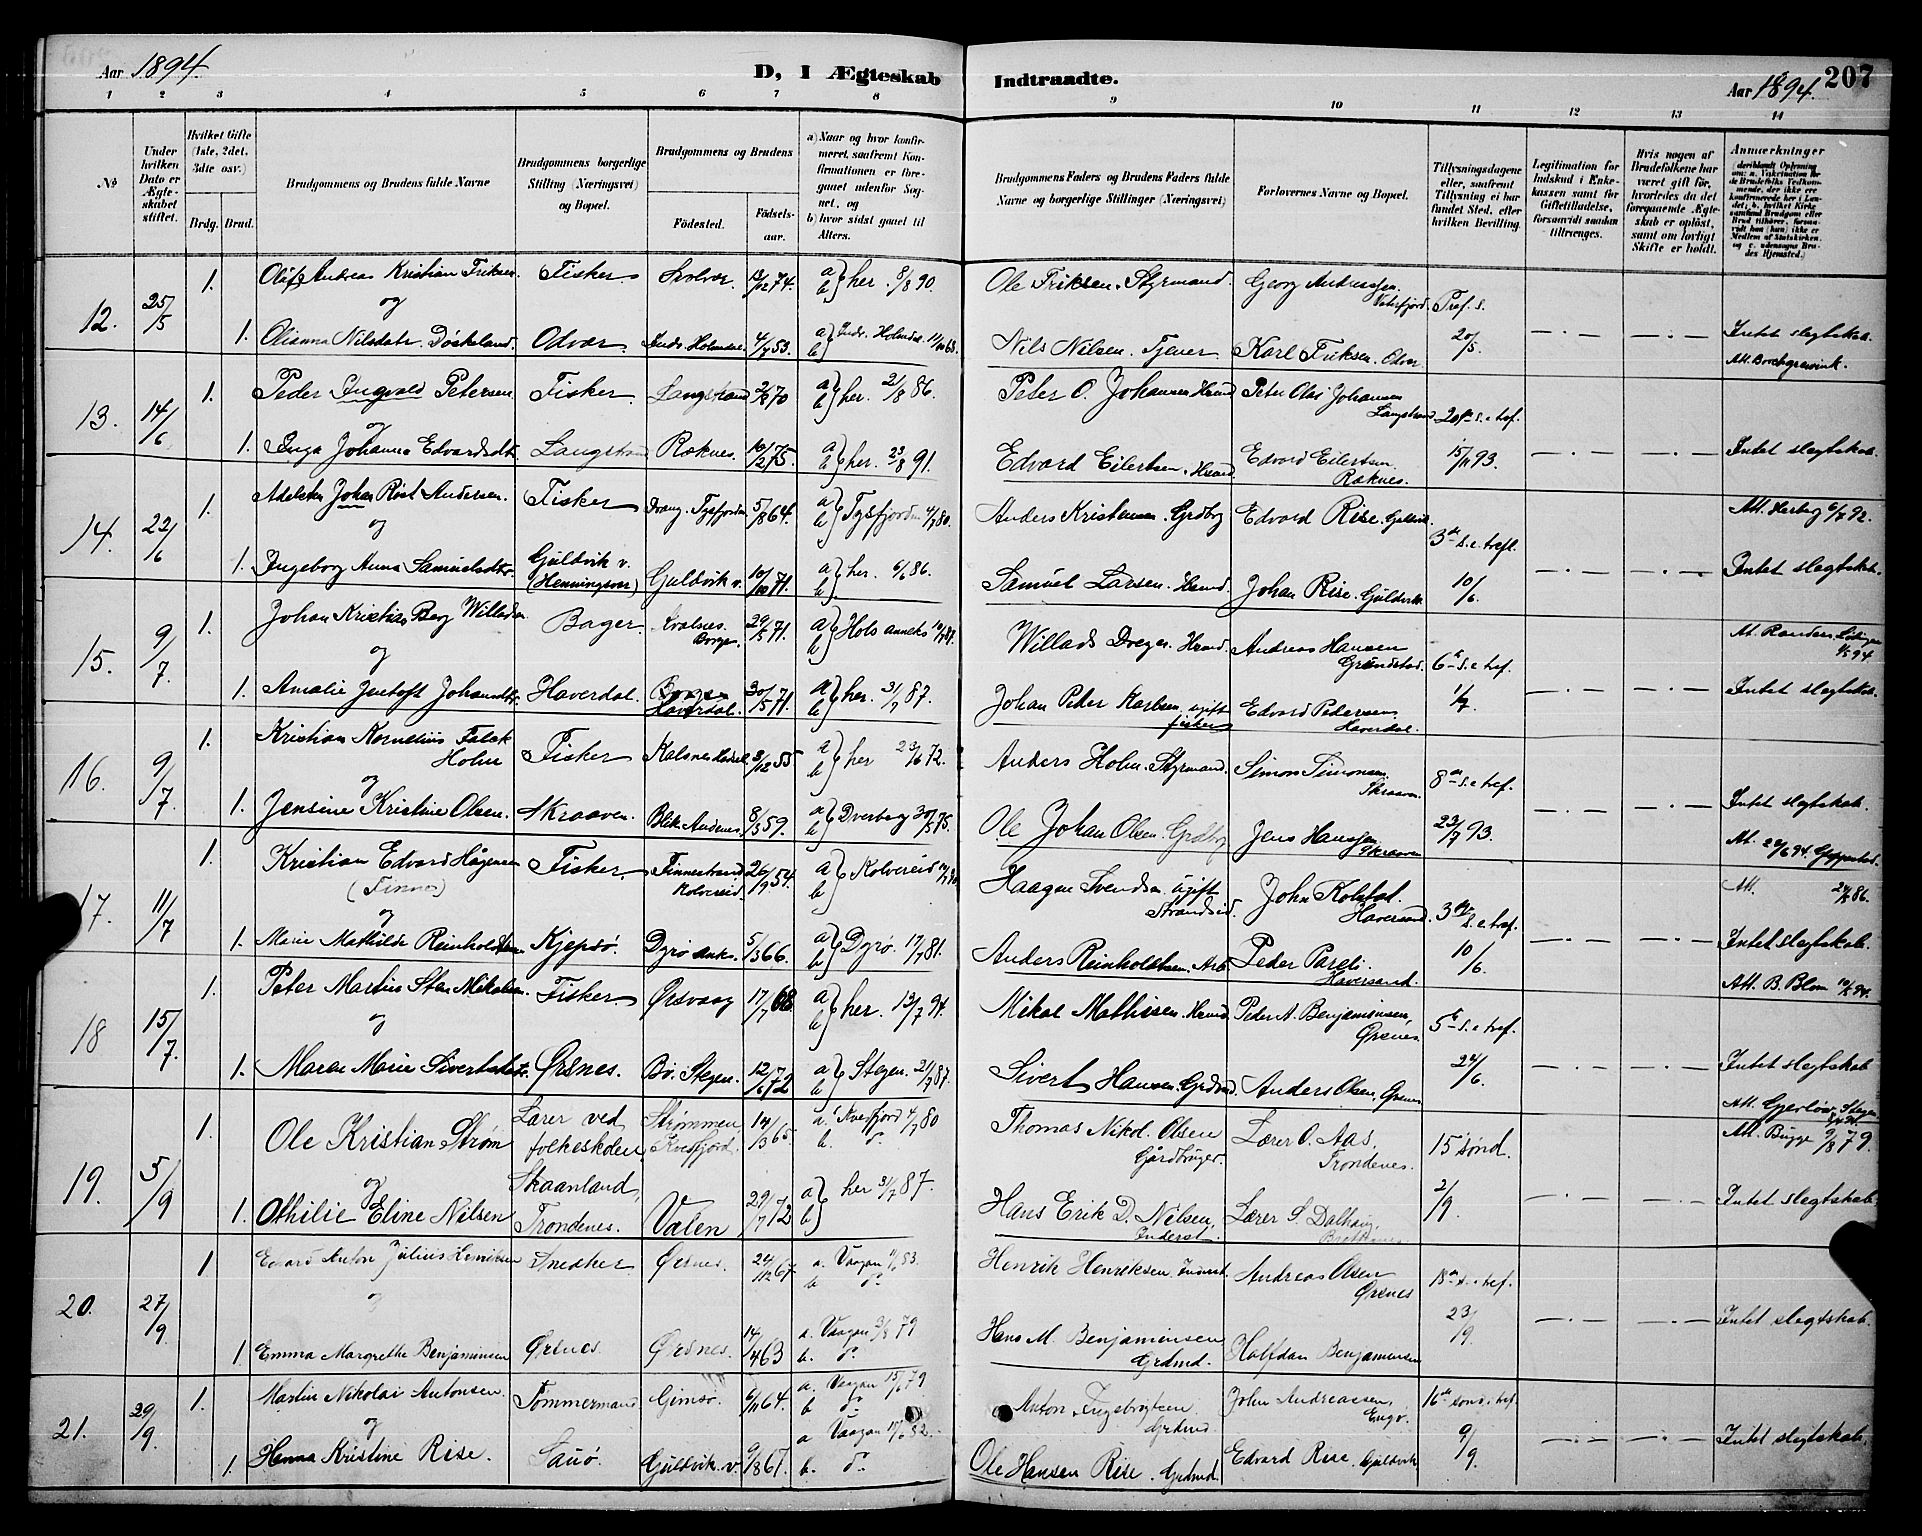 Aar 1894.
D, I Ægteskab Indtraadte.
Aar 1894. 207
1 2 3 4 5 6 7 8 9 10 11 12 13 14
No
Under hvilken Dato er Ægteskabet stiftet.
Hvilket Gifte (1ste, 2det, 3die osv.)
Brdg. Brud.
Brudgommens og Brudens fulde Navne
Brudgommens borgerlige Stilling (Næringsvei) og Bopæl.
Brudgommens og Brudens
Fødested. Fødselsaar.
a) Naar og hvor konfirmeret, saafremt Konfirmationen er foregaaet udenfor Sognet, og
b) hvor sidst gaaet til Alters.
Brudgommens Faders og Brudens Faders fulde Navne og borgerlige Stillinger (Næringsvei)
Forlovernes Navne og Bopæl.
Tillysningsdagene eller, saafremt Tillysning ei har fundet Sted, efter hvilken Bevilling.
Legitimation for Indskud i Enkekassen samt for Giftetilladelse, forsaavidt saadan tiltrænges.
Hvis nogen af Brudefolkene har været gift før, hvorledes da det foregaaende Ægteskab er opløst, samt om lovligt Skifte er holdt.
Anmærkninger
12. 25/5 1. Olaf Andreas Kristian Eriksen Fisker Svolvær 13/12 74. a b } her. 8/8 90. Ole Eriksen. Styrmand. Georg Andreassen
og
1. Olianna Nilsdatr. Døskeland. Odvær. Inds. Holmedal 4/7 53. a b } Indr. Holmdal Nils Nilsen. Tjener Karl Eriksen. Odvær 20/5. — . — — . — Intet slegtskab.
Att. Borchgrevink.
13. 14/6 1. Peder Ingvald Petersen Fisker. Langstrand 2/8 70 a b } her. 2/8 86. Peter O. Johansen Hrmd Peter Olai Johansen Langstrand
og
1. Inga Johanna Edvardsdtr Langstrand Røknes. 10/2 75. a b } her. 23/8 91. Edvard Eilertsen. Hrmd Edvard Eilertsen Røknes. 15/11 93. — . — — . — Intet slegtskab.
14. 22/6 1. Adelsten Johan Rist Andersen. Fisker Drang. Tysfjorden 5/8 64. a b } Tysfjorden 4/7 80. Anders Kristensen. Grdbrg Edvard Rise. Guldvik. 3die s. e. tref. Att. Herberg 6/7 92.
og
1. Ingeborg Anna Samuelsdtr. Guldvik v. (Henningsvær) Guldvik v. 10/10 71. a b } her. 6/6 86. Samuel Larsen. Hrmd. Johan Rise. Guldvik 10/6. — . — — . — Intet slegtskab.
15. 9/7. 1. Johan Kristian Berg Willadsen Bager. Kvalnes. Borge. 29/5 71. a b } Hols anneks Willads Dreyer. Hrmd. Andreas Hansen Grundstad. 6te s. e tref.
og
1. Amalie Justoft Johansdtr. Haverdal. Borge Haverdal. 30/5 71. a b } her. 3/7 87. Johan Peter Karlsen. ugift fisker Edvard Pedersen Haverdal. 1/7. — . — — . — Intet slegtskab.
16. 9/7. 1. Kristian Kornelius Falck Holm Fisker Kalsnes Hadsel 3/12 55 a b } her 23/6 72. Anders Holm. Styrmand. Simon Simonsen. Skraaven. 8de s. e tref.
og
1. Jensine Kristine Olsen. Skraaven. Blik. Andenes. 8/3 59. a b } Dverberg 30/5 75. Ole Johan Olsen. Grdbrg Jens Hanssen Skraaven 23/7 93. — . — — . — Intet slegtskab.
17. 11/7 1. Kristian Edvard Hågensen (Finnø) Fisker. Finnestrand Kolvereid. 26/9 54. a b } Kolvereid Haagen Svendsen. ugift Strandsid. John Kolstad. Haversand. 3die s. e tref. Att. 24/5 86.
og
1. Marie Mathilde Reinholdtsen Kjepsø. Dyrø Anks. 5/3 66. a b } Dyrø. 17/7 81. Anders Reinholdtsen. Arb. Peder Pareli. Haversand. 10/6. — . — — . — Intet slegtskab.
Att. B. Blom
18 15/7. 1. Peter Martin Sten Mikalsen. Fisker. Ørsvaag 17/7 68 a b } her. 13/7 94. Mikal Mathisen. Hrmd. Peder A. Benjaminsen, Ørsnes. 5te s. e tref.
og
1. Maren Marie Sivertsdtr. Ørsnes. Bø. Stegen. 12/6 72 a b } Stegen. 21/7 87. Sivert Hansen. Grdmd. Anders Olsen. Ørsnes 24/6. — . — — . — Intet slegtskab
19. 5/9 1. Ole Kristian Strøm Lærer ved folkeskolen Strømmen, Kvefjord. 14/3 65. a. Kvefjord 4/7 80 b. d°. Thomas Nikol. Olsen Gårdbruger. Lærer O. Aas. Trondenes. 15 sønd. Att. Bugge 9/8 79.
og
1. Othilie Eline Nilsen Skaanland, Trondenes. Valen 29/7 72 a b } her 31/7 87. Hans Erik D. Nilsen. Inderst. Lærer S. Dalhaug. Brettesnes. 2/9. — . — — . — Intet slegtskab.
20. 27/9. 1 Edvard Anton Julius Henriksen Snedker Ørsnes. 24/11 67 a. Vaagan 83. b d°. Henrik Henriksen. Inderst. Andreas Olsen Ørsnes 18de s. e tref.
og
1. Emma Margrethe Benjaminsen Ørsnes. Ørsnes. 14/4 63 a. Vaagan 3/8 79 b. d°. Hans M. Benjaminsen Grdmd. Halfdan Benjaminsen 23/9. — . — — . — Intet slegtskab.
21. 29/9. 1. Martin Nikolai Antonsen. Tømmermand Gimsø. 6/11 64. a. Vaagan 15/6 79 b d° Anton Ingebrigtsen Grdmd John Andreassen Engø. 16de sønd. e. tref.
og
1. Hanna Kristine Rise. Sauø. Guldvik. v. 9/8 67. a Vaagan b. d°. Ole Hansen Rise. Grdmd. Edvard Rise. Guldvik 9/9. — . — — . — Intet slegtskab.